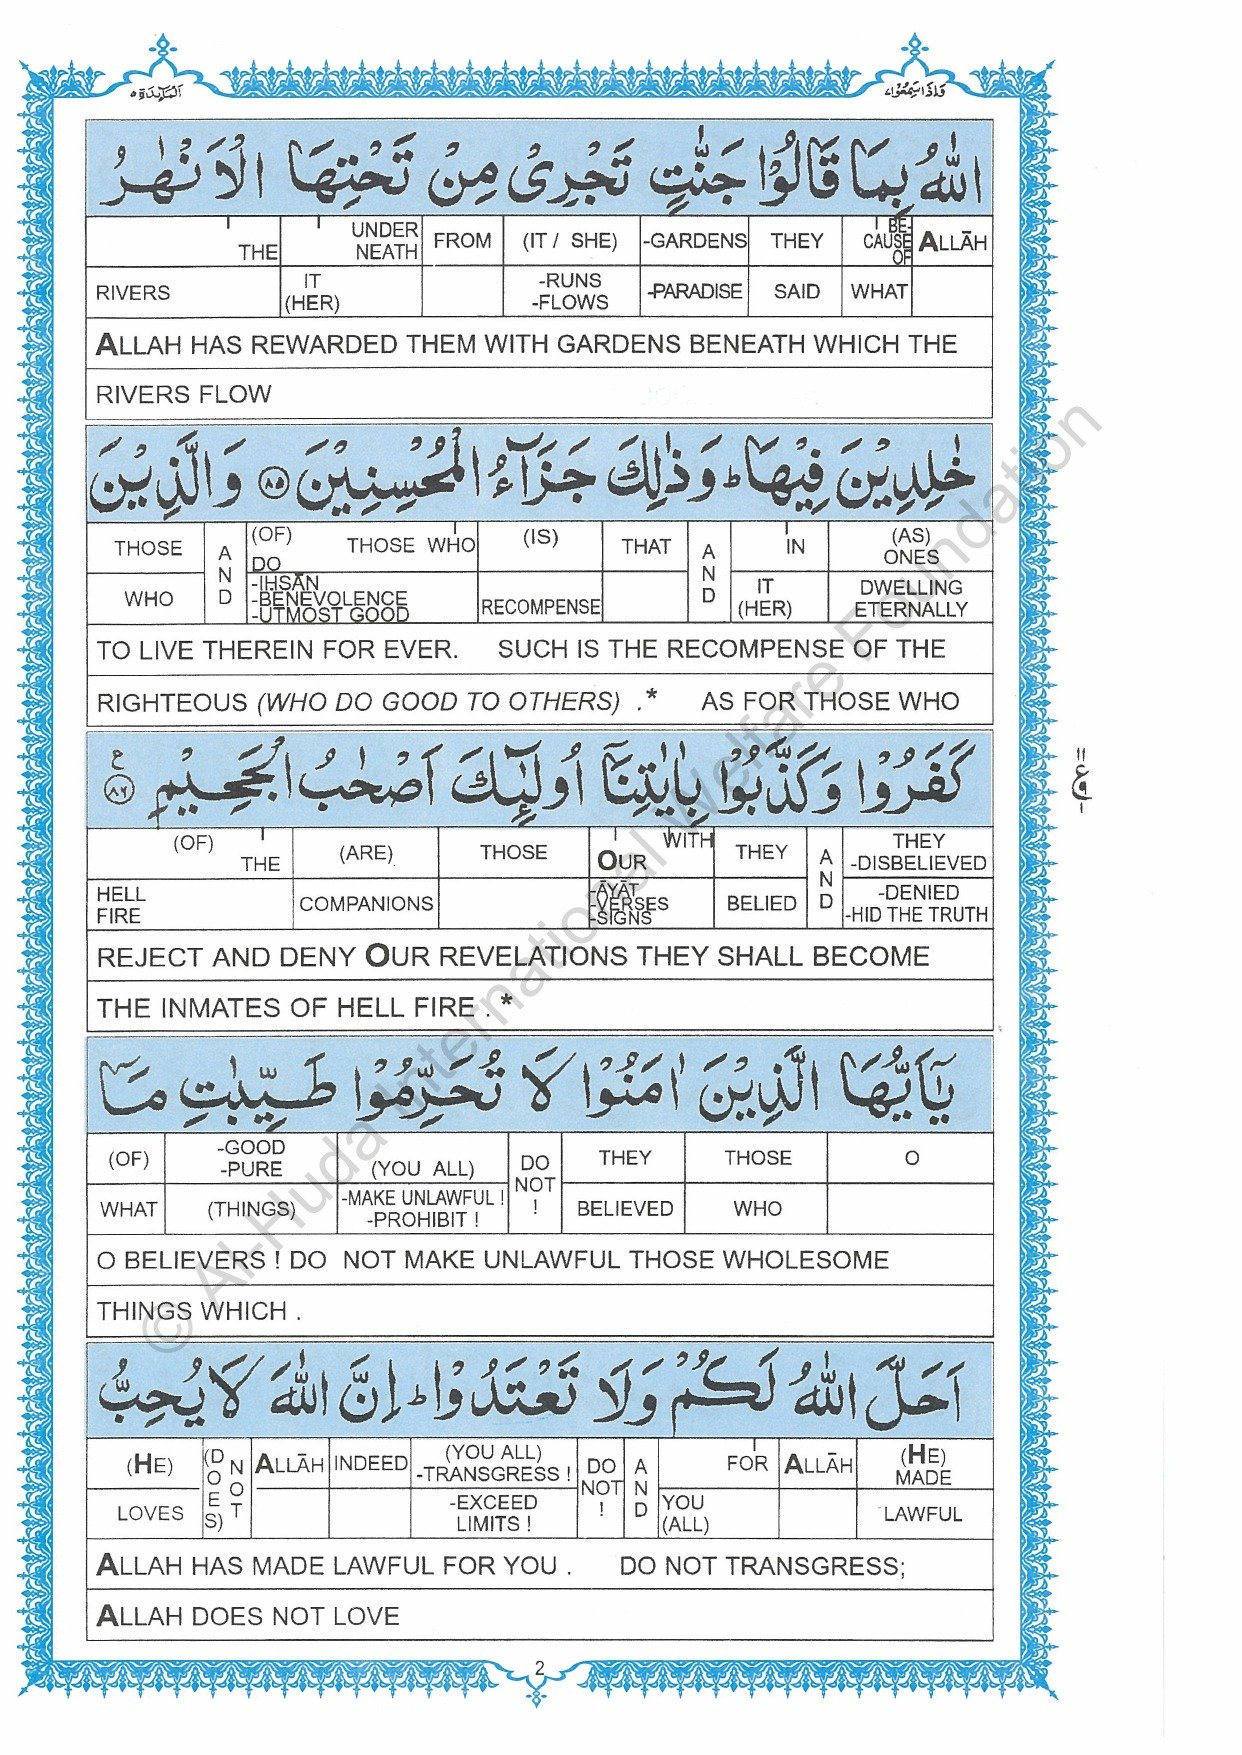 المائدة ٥
واذا سمعوا ٧
اللّٰهُ بِمَا قَالُوْا جَنّٰتٍ تَجْرِیْ مِنْ تَحْتِهَا الْاَنْهٰرُ
THE UNDER NEATH FROM (IT / SHE) -GARDENS THEY BE-CAUSE OF ALLĀH
RIVERS IT (HER) -RUNS -FLOWS -PARADISE SAID WHAT
ALLAH HAS REWARDED THEM WITH GARDENS BENEATH WHICH THE
RIVERS FLOW
خٰلِدِیْنَ فِیْهَا ؕ وَ ذٰلِكَ جَزَآءُ الْمُحْسِنِیْنَ ۸۵ وَ الَّذِیْنَ
THOSE AND (OF) DO THOSE WHO (IS) THAT AND IN (AS) ONES
WHO -IḤSĀN -BENEVOLENCE -UTMOST GOOD RECOMPENSE IT (HER) DWELLING ETERNALLY
TO LIVE THEREIN FOR EVER. SUCH IS THE RECOMPENSE OF THE
RIGHTEOUS (WHO DO GOOD TO OTHERS) .* AS FOR THOSE WHO
كَفَرُوْا وَ كَذَّبُوْا بِاٰیٰتِنَاۤ اُولٰٓىِٕكَ اَصْحٰبُ الْجَحِیْمِ ۸۶ ع
(OF) THE (ARE) THOSE OUR WITH THEY AND THEY -DISBELIEVED
HELL FIRE COMPANIONS -ĀYĀT -VERSES -SIGNS BELIED -DENIED -HID THE TRUTH
REJECT AND DENY OUR REVELATIONS THEY SHALL BECOME
THE INMATES OF HELL FIRE . *
یٰۤاَیُّهَا الَّذِیْنَ اٰمَنُوْا لَا تُحَرِّمُوْا طَیِّبٰتِ مَاۤ
(OF) -GOOD -PURE (YOU ALL) DO NOT ! THEY THOSE O
WHAT (THINGS) -MAKE UNLAWFUL ! -PROHIBIT ! BELIEVED WHO
O BELIEVERS ! DO NOT MAKE UNLAWFUL THOSE WHOLESOME
THINGS WHICH .
اَحَلَّ اللّٰهُ لَكُمْ وَ لَا تَعْتَدُوْا ؕ اِنَّ اللّٰهَ لَا یُحِبُّ
(HE) (DOES) NOT ALLĀH INDEED (YOU ALL) -TRANSGRESS ! DO NOT ! AND FOR ALLĀH (HE) MADE
LOVES -EXCEED LIMITS ! YOU (ALL) LAWFUL
ALLAH HAS MADE LAWFUL FOR YOU . DO NOT TRANSGRESS;
ALLAH DOES NOT LOVE
2
© Al-Huda International Welfare Foundation